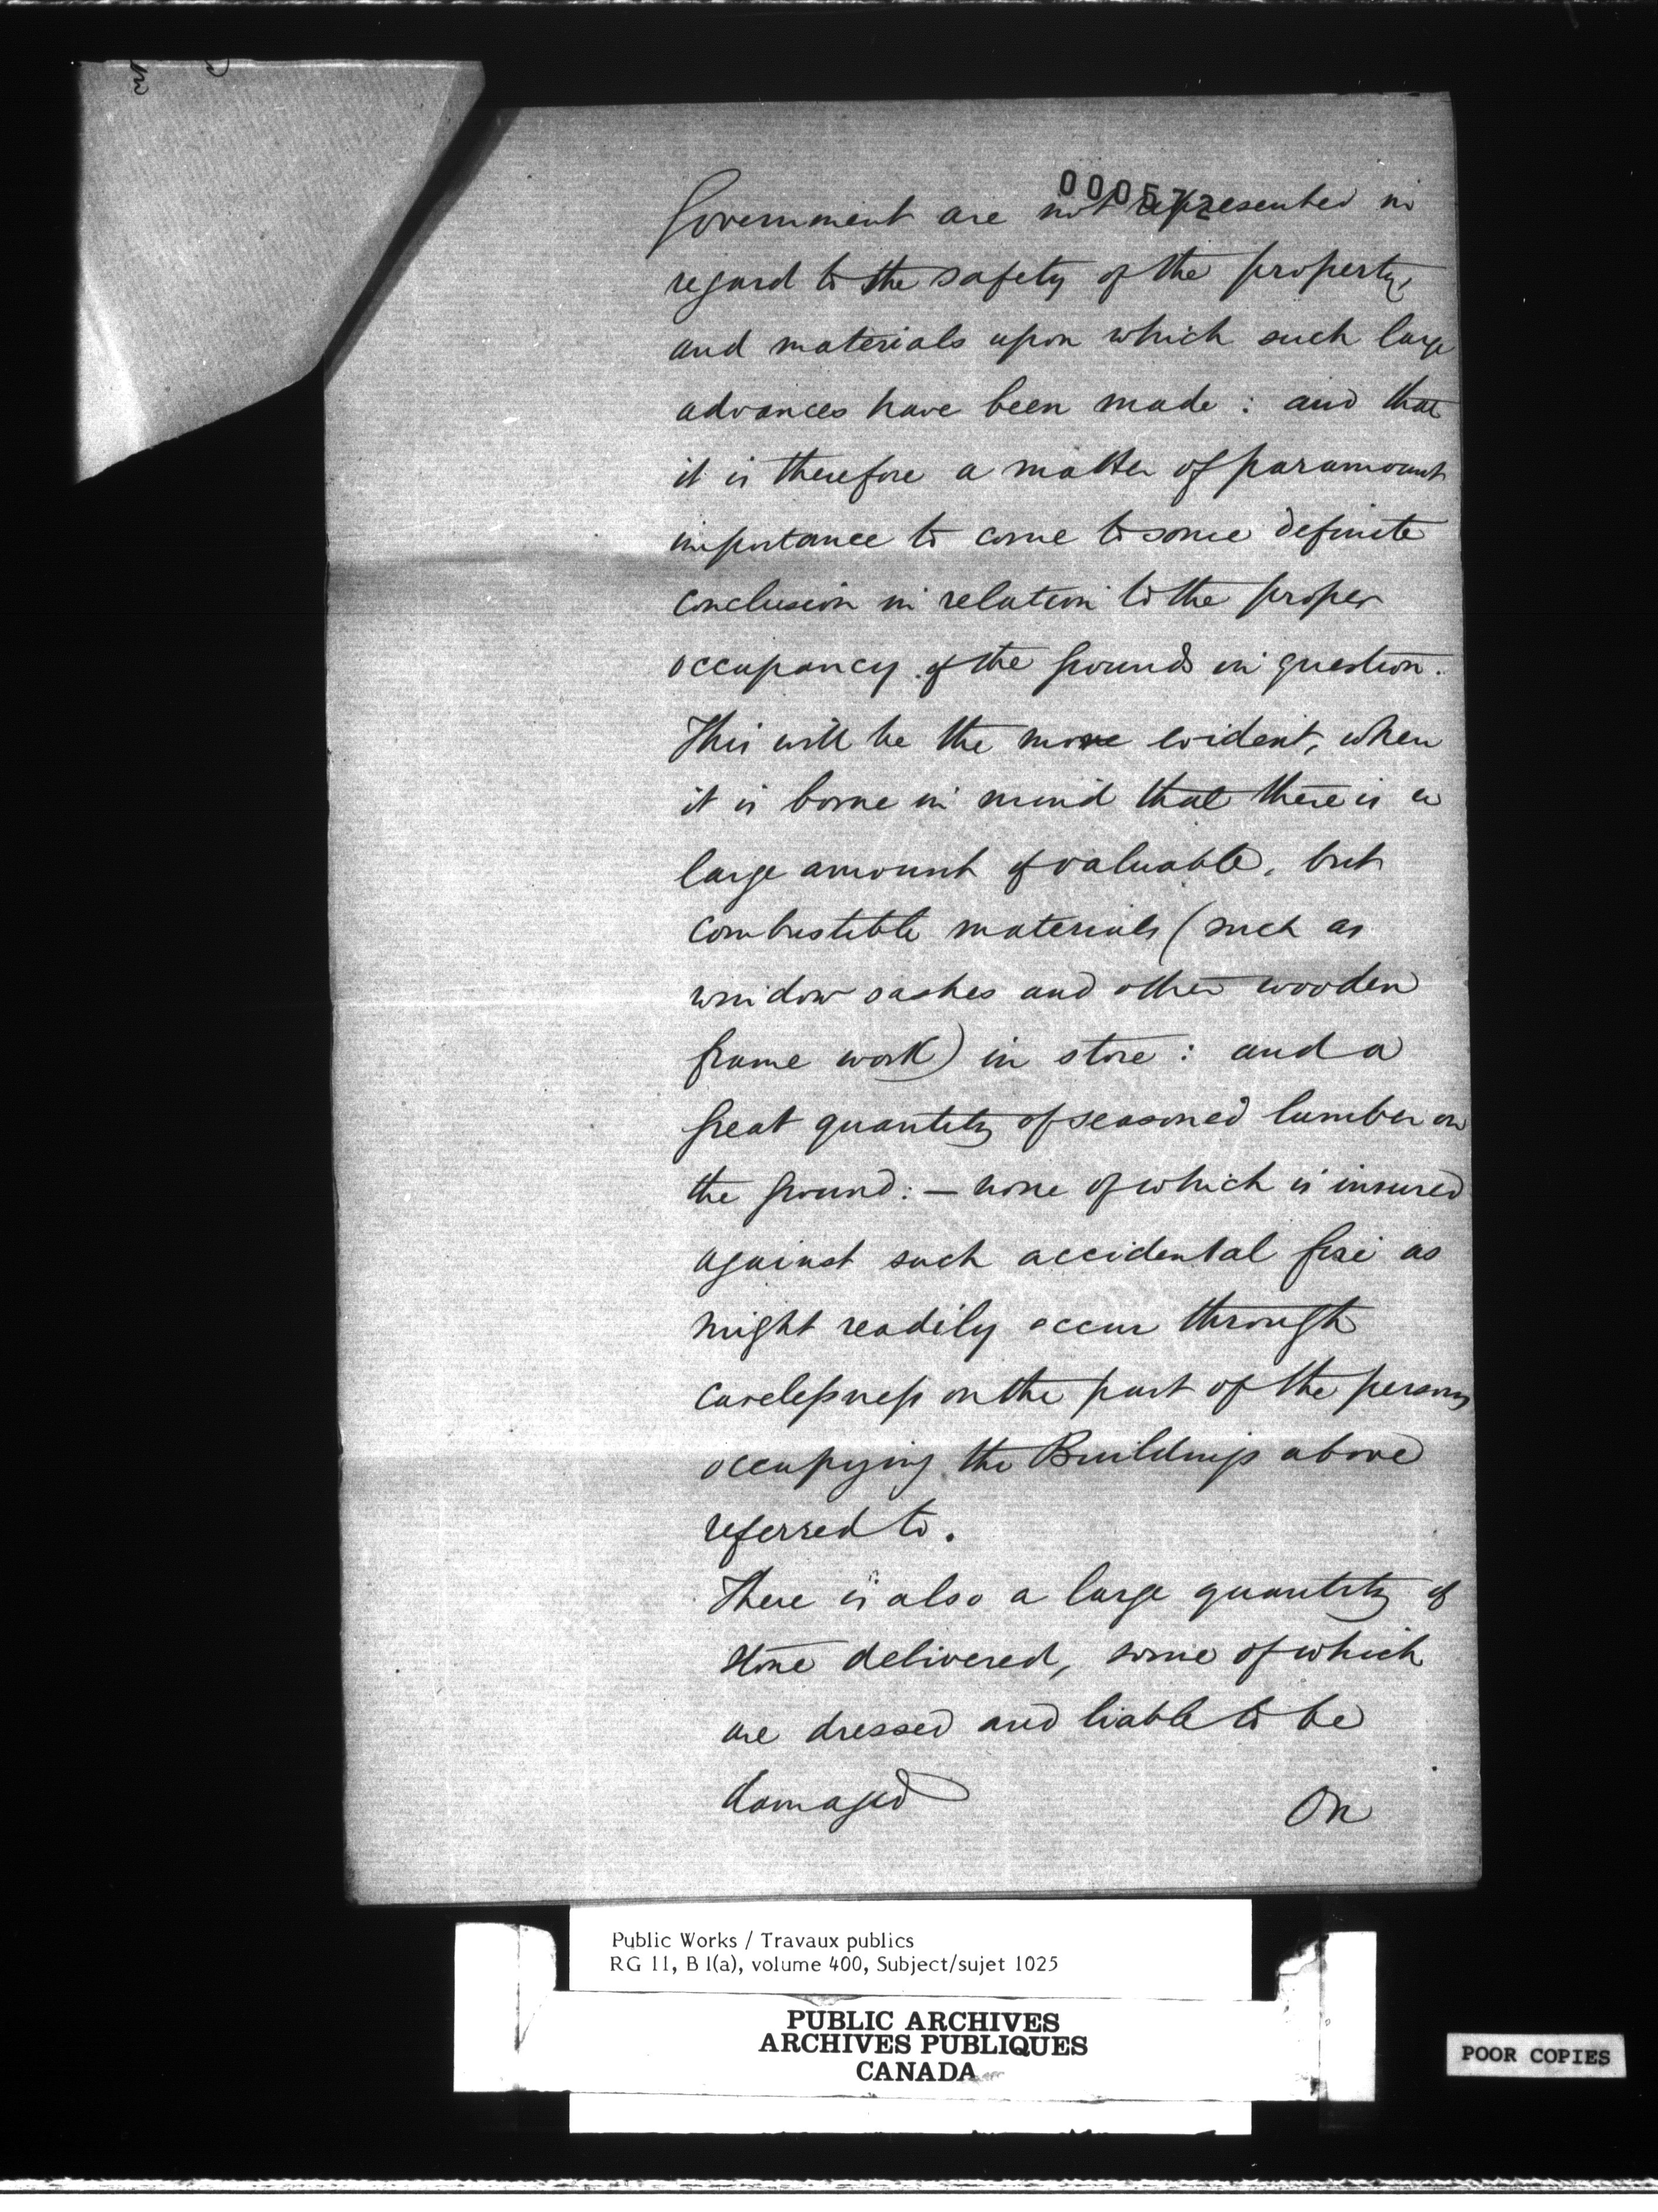 000572
Government are not represented in
regard to the safety of the property,
and materials upon which such large
advances have been made : and that
it is therefore a matter of paramount
importance to come to some definite
conclusion in relation to the proper
occupancy of the grounds in question.
This will be the more evident, when
it is borne in mind that there is a
large amount of valuable, but
combustible materials (such as
window sashes and other wooden
frame work) in store : and a
great quantity of seasoned lumber on
the ground : — none of which is insured
against such accidental fire as
might readily occur through
carelessness on the part of the persons
occupying the Buildings above
referred to.
There is also a large quantity of
stone delivered, some of which
are dressed and liable to be
damaged
On
Public Works / Travaux publics
RG 11, B 1(a), volume 400, Subject/sujet 1025
PUBLIC ARCHIVES
ARCHIVES PUBLIQUES
CANADA
POOR COPIES